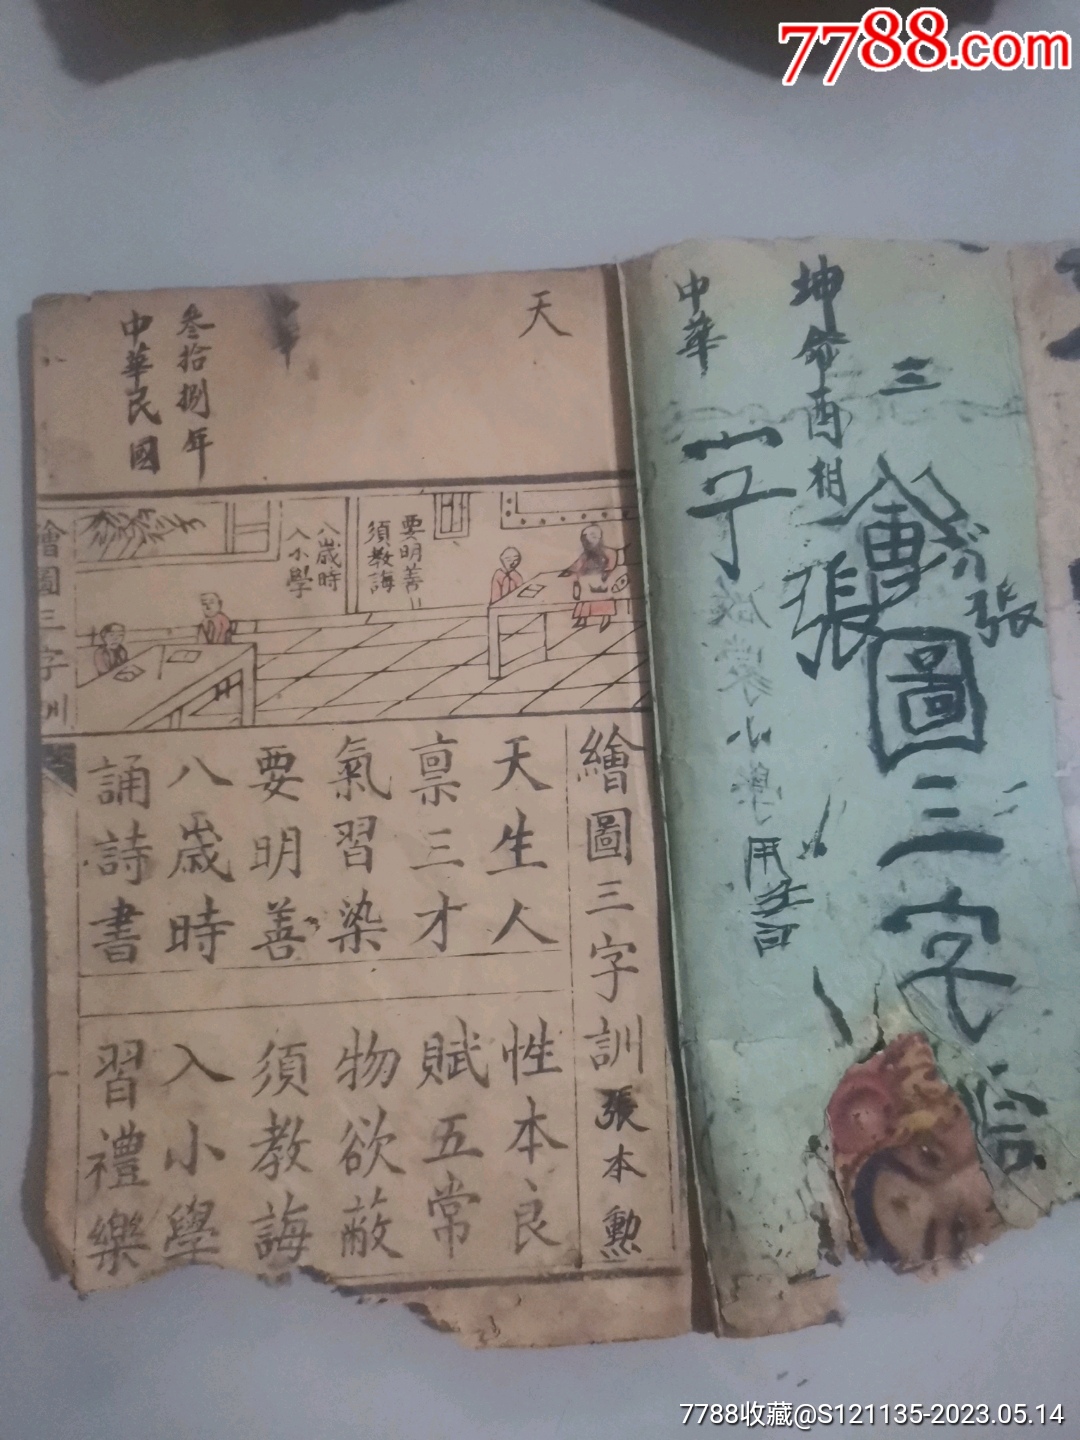 7788.com
坤命酉相
三
中華
字
張
張
繪圖三字
啟蒙小學
天
叁拾捌年
中華民國
中華
要明善
須教誨
八歲時
入小學
繪圖三字訓
繪圖三字訓 張本勳
天生人 性本良
稟三才 賦五常
氣習染 物欲蔽
要明善 須教誨
八歲時 入小學
誦詩書 習禮樂
7788收藏@S121135-2023.05.14